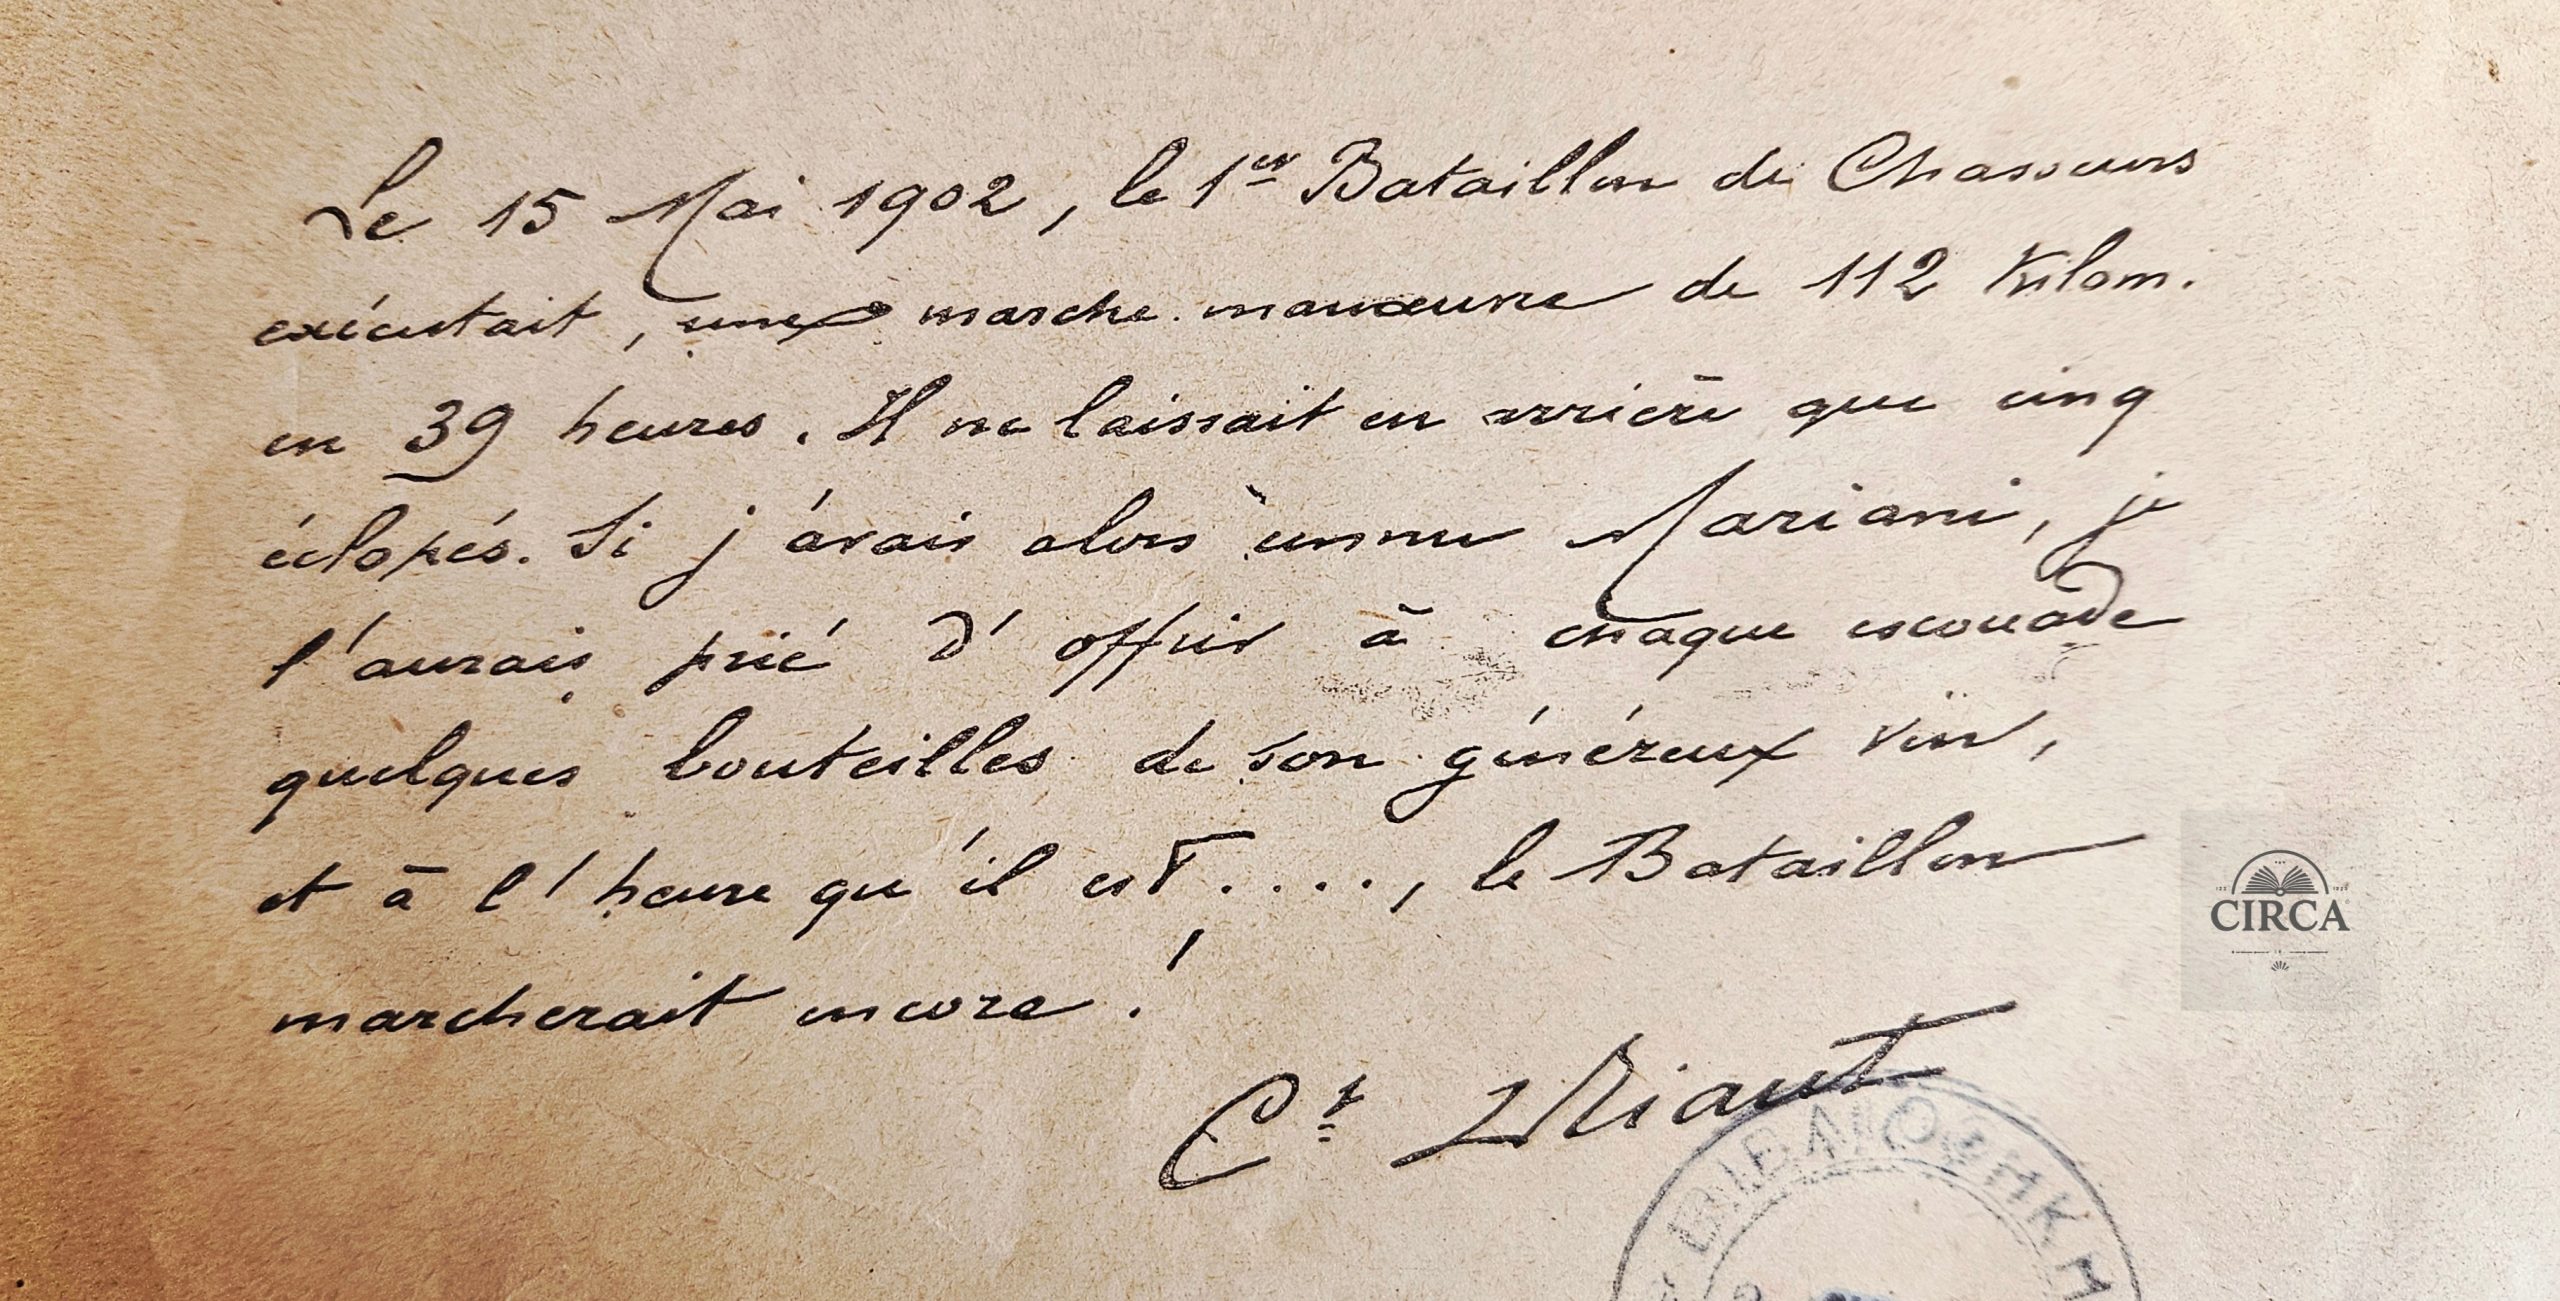 Le 15 Mai 1902, le 1er Bataillon de Chasseurs
exécutait, une marche manœuvre de 112 Kilom.
en 39 heures. Il ne laissait en arrière que cinq
éclopés. Si j'avais alors connu Mariani, je
l'aurais prié d'offrir à chaque escouade
quelques bouteilles de son généreux vin,
et à l'heure qu'il est...., le Bataillon
marcherait encore!
Ct Driant
CIRCA
ΒΙΒΛΙΟΘΗΚΗ